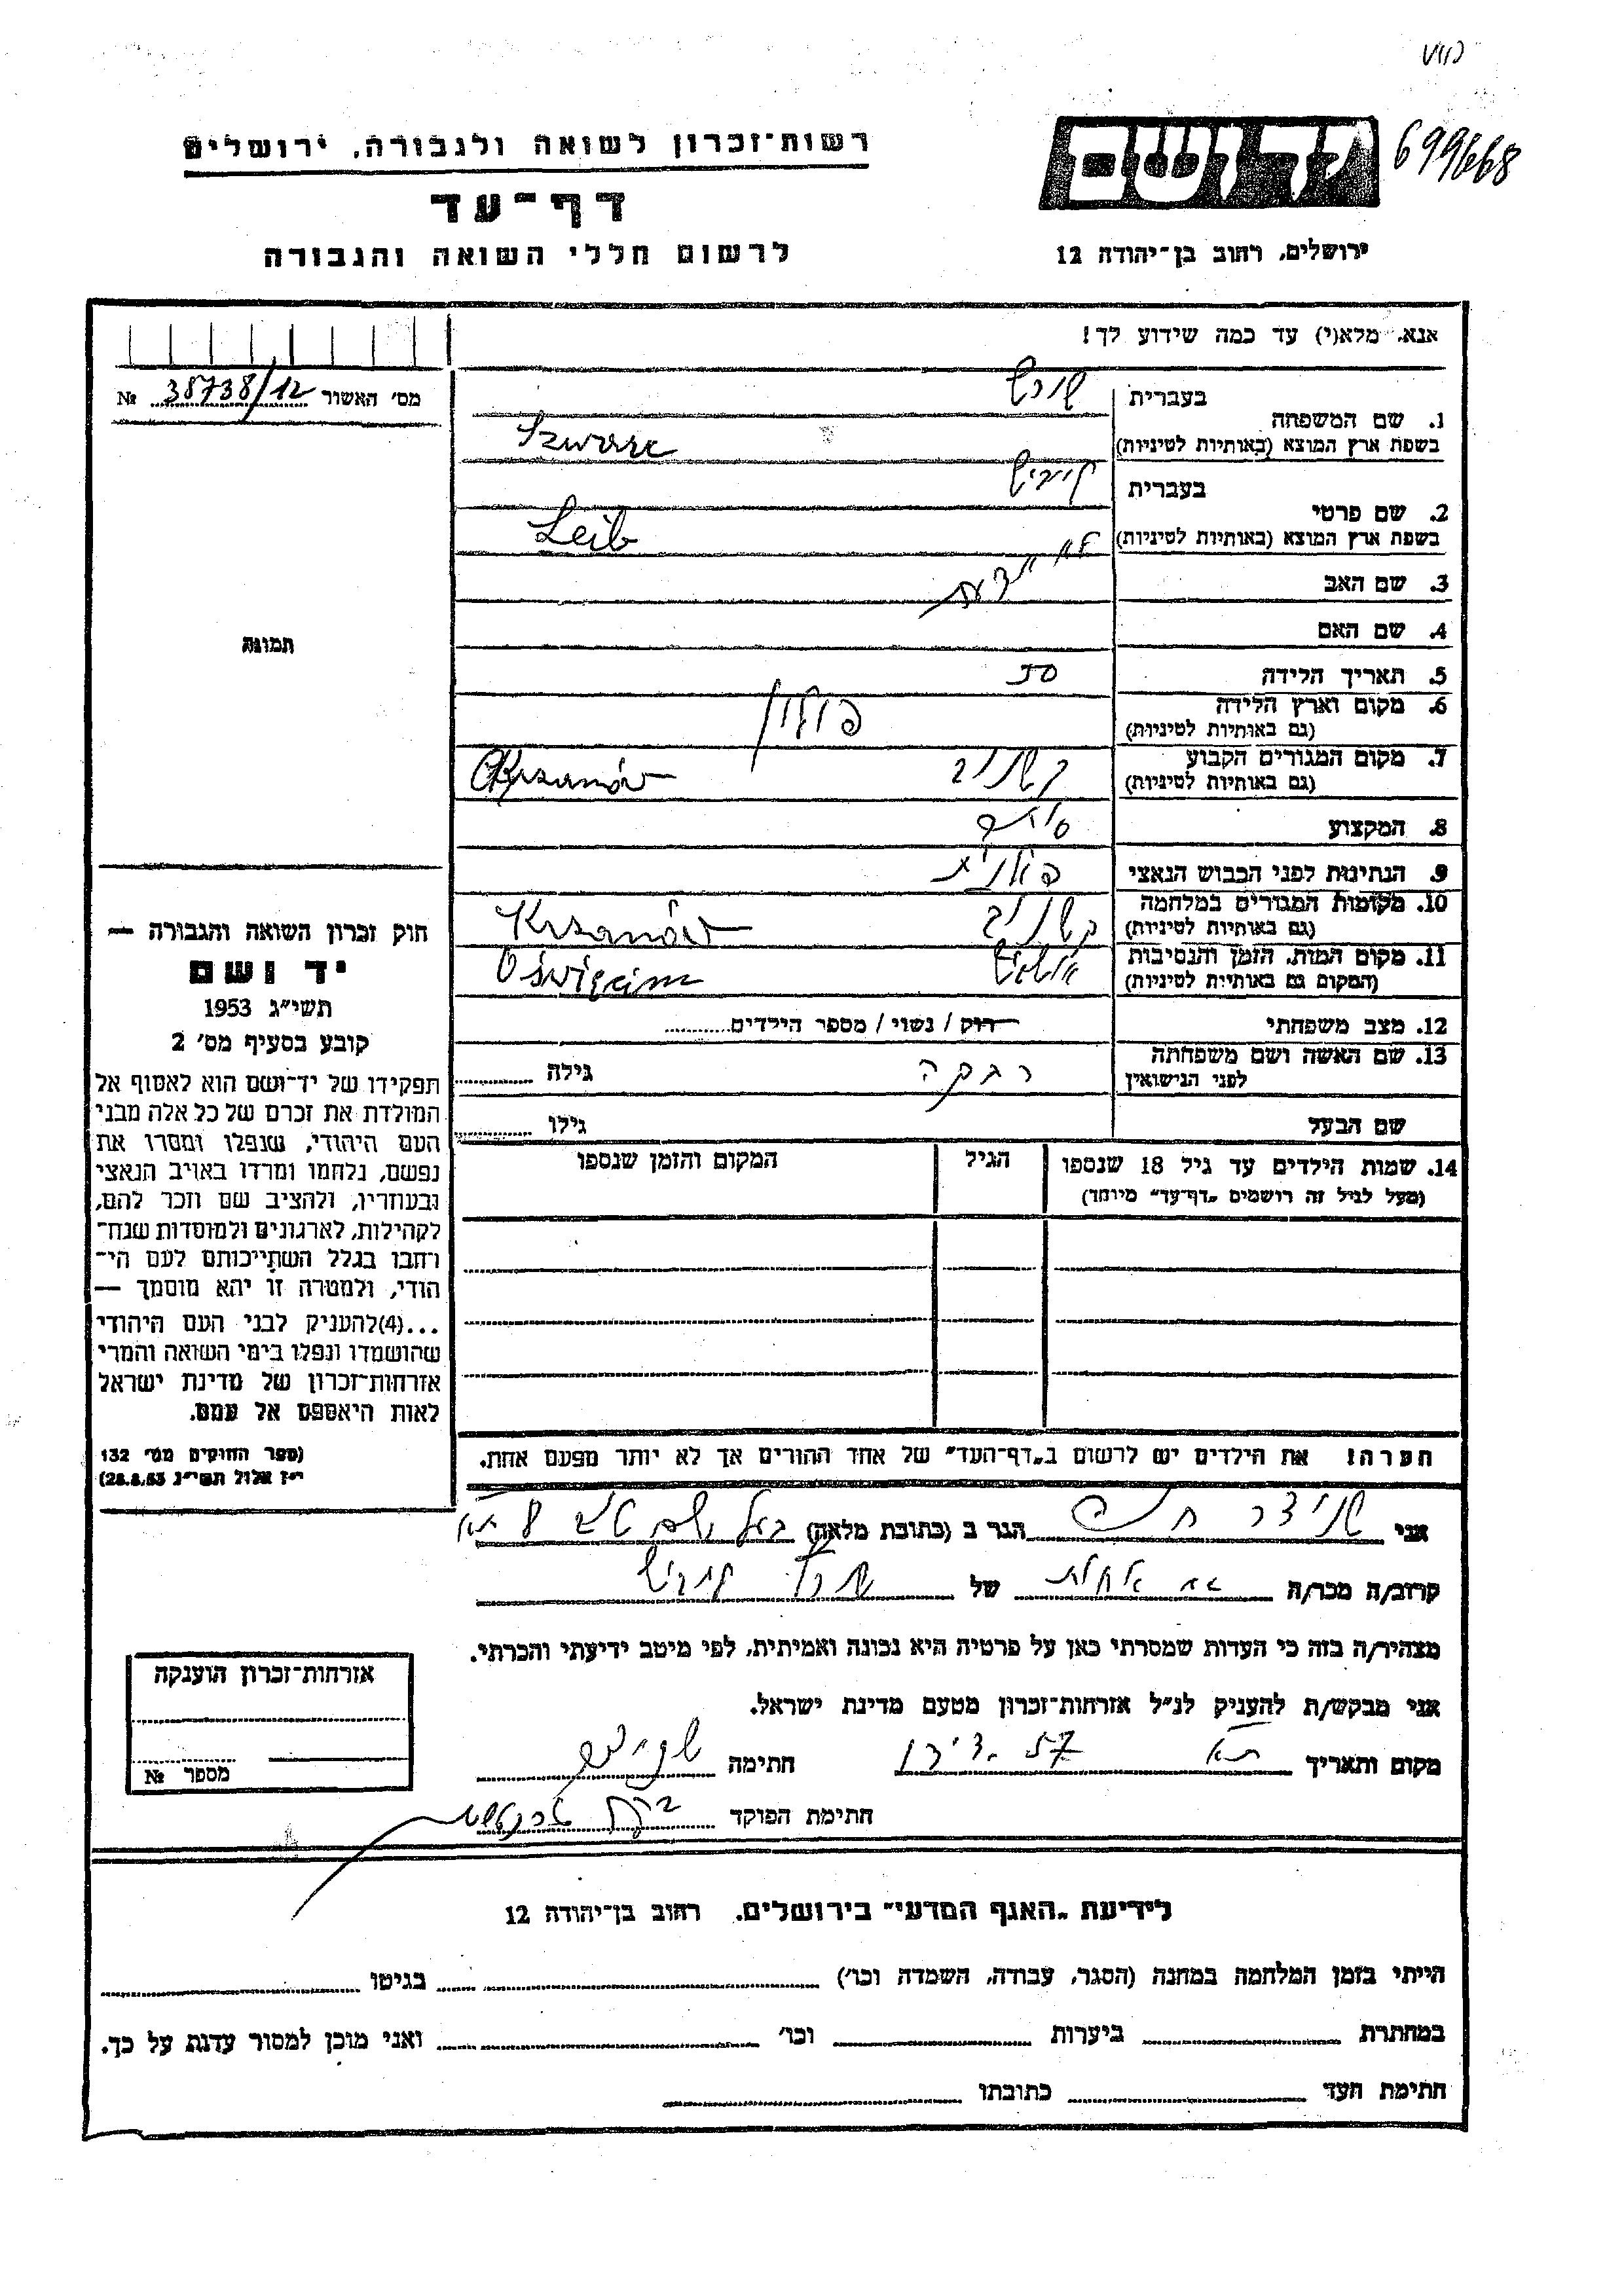 699668
יד ושם
רשות־זכרון לשואה ולגבורה, ירושלים
דף־עד
לרשום חללי השואה והגבורה
ירושלים, רחוב בן־יהודה 12
אנא, מלא(י) עד כמה שידוע לך!
מס' האשור 38738/12 №
1. שם המשפחה
בעברית
בשפת ארץ המוצא (באותיות לטיניות) Szwarc
2. שם פרטי
בעברית
בשפת ארץ המוצא (באותיות לטיניות) Leib
3. שם האב לא ידעת
4. שם האם
5. תאריך הלידה
6. מקום וארץ הלידה פולין
(גם באותיות לטיניות)
7. מקום המגורים הקבוע קשנוב Chrzanów
(גם באותיות לטיניות)
8. המקצוע סוחר
9. הנתינות לפני הכבוש הנאצי פולנית
10. מקומות המגורים במלחמה קשנוב Krzanów
(גם באותיות לטיניות)
11. מקום המות, הזמן והנסיבות אושוויץ Oświęcim
(המקום גם באותיות לטיניות)
12. מצב משפחתי רוק / נשוי / מספר הילדים
13. שם האשה ושם משפחתה רבקה גילה
לפני הנישואין
שם הבעל גילו
14. שמות הילדים עד גיל 18 שנספו הגיל המקום והזמן שנספו
(מעל לגיל זה רושמים "דף־עד" מיוחד)
הערה! את הילדים יש לרשום ב"דף־העד" של אחד ההורים אך לא יותר מפעם אחת.
תמונה
חוק זכרון השואה והגבורה —
יד ושם
תשי"ג 1953
קובע בסעיף מס' 2
תפקידו של יד־ושם הוא לאסוף אל
המולדת את זכרם של כל אלה מבני
העם היהודי, שנפלו ומסרו את
נפשם, נלחמו ומרדו באויב הנאצי
ובעוזריו, ולהציב שם וזכר להם,
לקהילות, לארגונים ולמוסדות שנח־
רבו בגלל השתייכותם לעם הי־
הודי, ולמטרה זו יהא מוסמך —
...(4)להעניק לבני העם היהודי
שהושמדו ונפלו בימי השואה והמרי
אזרחות־זכרון של מדינת ישראל
לאות היאספם אל עמם.
(ספר החוקים מס' 132
י"ז אלול תשי"ג 28.8.53)
אני שניצר הגר ב (כתובת מלאה) בעל שם טב 8 ת"א
קרוב/ה מכר/ה של
מצהיר/ה בזה כי העדות שמסרתי כאן על פרטיה היא נכונה ואמיתית, לפי מיטב ידיעתי והכרתי.
אני מבקש/ת להעניק לנ"ל אזרחות־זכרון מטעם מדינת ישראל.
מקום ותאריך ת"א חתימה שניצר
חתימת הפוקד
אזרחות־זכרון הוענקה
מספר №
לידיעת "האגף המדעי" בירושלים, רחוב בן־יהודה 12
הייתי בזמן המלחמה במחנה (הסגר, עבודה, השמדה וכו') בגיטו
במחתרת ביערות וכו' ואני מוכן למסור עדות על כך.
חתימת העד כתובתו